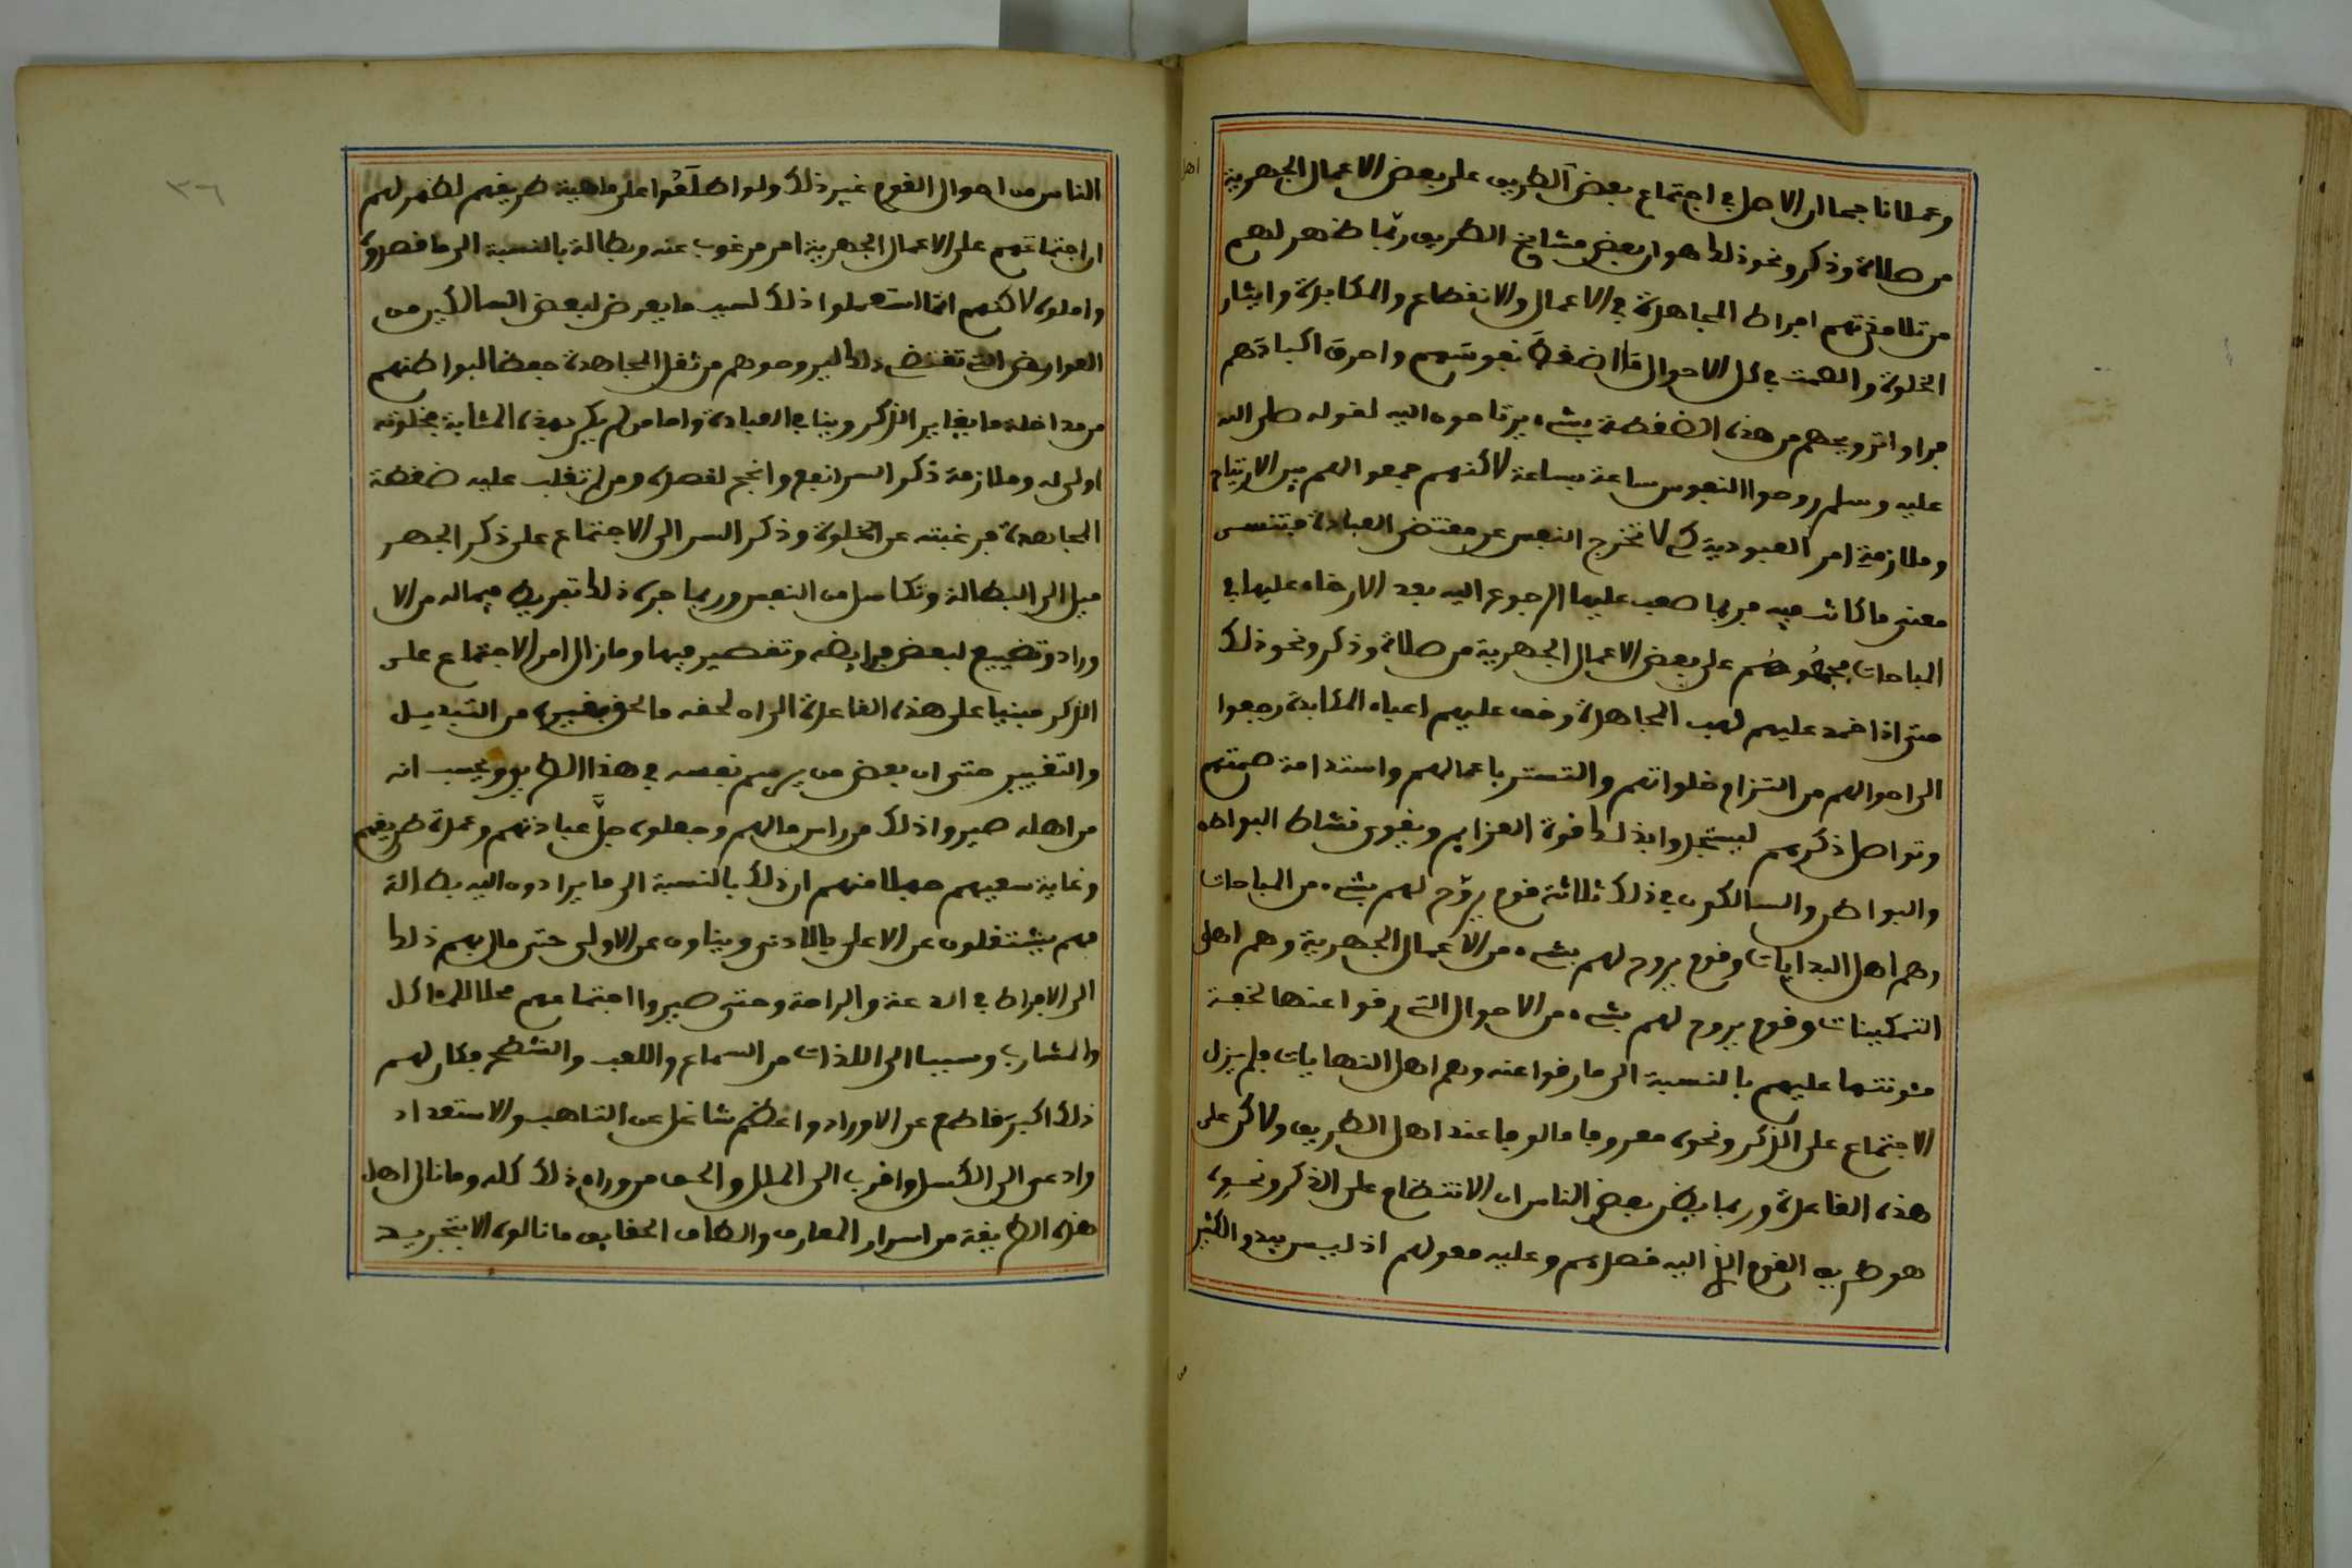 وعملانا جمال الاصل في اجتماع بعض الطريق على بعض الاعمال الجهرية
من صلاة وذكر ونحو ذلك هو ان بعض مشايخ الطريق ربما ظهر لهم
من تلامذتهم افراط المجاهدة في الاعمال والانقطاع والمكابدة وايثار
الخلوة والصمت في كل الاحوال ضغط نفوسهم واحرق اكبادهم
فراوا ترويحهم من هذه الضغطة بشيء يرتاحون اليه لقوله صلى الله
عليه وسلم روحوا النفوس ساعة بساعة لاكنهم جمعوا لهم بين الارتياح
وملازمة امر العبودية كي لا تخرج النفس عن مقتضى العبادة فتنسى
معنى ما كانت فيه فربما صعب عليها الرجوع اليه بعد الارخاء عليها في
المباحات فجمعوهم على بعض الاعمال الجهرية من صلاة وذكر ونحو ذلك
حتى اذا خمد عليهم لهب المجاهدة وخف عليهم اعباء المكابدة رجعوا
الى احوالهم من التزام خلواتهم والتستر باعمالهم واستدامة صمتهم
وتواصل ذكرهم ليستجلوا بذلك قوة العزايم ويقوى نشاط البواطن
والبواطن والسالكون في ذلك ثلاثة قوم يروح لهم بشيء من المباحات
وهم اهل البدايات وقوم يروح لهم بشيء من الاعمال الجهرية وهم اهل
التمكينات وقوم يروح لهم بشيء من الاحوال التي رقوا عنها لخفة
مئونتها عليهم بالنسبة الى ما رقوا عنه وهم اهل النهايات فلم يزل
الاجتماع على الذكر ونحوه معروفا مالوفا عند اهل الطريق ولاكن على
هذه القاعدة وربما يظن بعض الناس ان الانتظام على الذكر ونحوه
هو طريق القوم الذي اليه قصدهم وعليه معولهم اذ ليس يبدو الكثير
اهل
الناس من احوال القوم غير ذلك ولو اطلعوا على ماهية طريقهم لظهر لهم
ان اجتماعهم على الاعمال الجهرية امر مرغوب عنه وبطالة بالنسبة الى ما قصدوه
واملوه لاكنهم انما استعملوا ذلك لسبب ما يعرض لبعض السالكين من
العوارض التي تقتضي ذلك ليروحوهم من ثقل المجاهدة حفظا لبواطنهم
من مداخلة ما يغاير الذكر وينافي العبادة واما من لم يكن بهذه المثابة فخلوته
اولى له وملازمة ذكر السر انفع وانجح لقصده ومن لم تغلب عليه ضغطة
المجاهدة فرغبته عن الخلوة وذكر السر الى الاجتماع على ذكر الجهر
ميل الى البطالة وتكاسل من النفس وربما جره ذلك تفريط فيما له من الا
وراد وتضييع لبعض فرايضه وتقصير فيها وما زال امر الاجتماع على
الذكر مبنيا على هذه القاعدة الى ان لحقه ما لحق بغيره من التبديل
والتغيير حتى ان بعض من يرسم نفسه في هذا الطريق ويحسب انه
من اهله صيروا ذلك من راس مالهم وجعلوه جل عبادتهم وعمدة طريقهم
وغاية سعيهم جهلا منهم ان ذلك بالنسبة الى ما يرادون اليه بطالة
فهم يشتغلون عن الاعلى بالادنى ويناون عن الاولى حتى مال بهم ذلك
الى الافراط في الدعة والراحة وحتى صيروا اجتماعهم محلا للماكل
والمشارب وسببا الى اللذات من السماع واللعب والشطح فكان لهم
ذلك اكبر قاطع عن الاوراد واعظم شاغل عن التاهب والاستعداد
وادعى الى الكسل واقرب الى الملل والحق من وراء ذلك كله وما نال اهل
هذه الطريقة من اسرار المعارف والطاف الحقايق ما نالوه الا بتجريد
٣٦